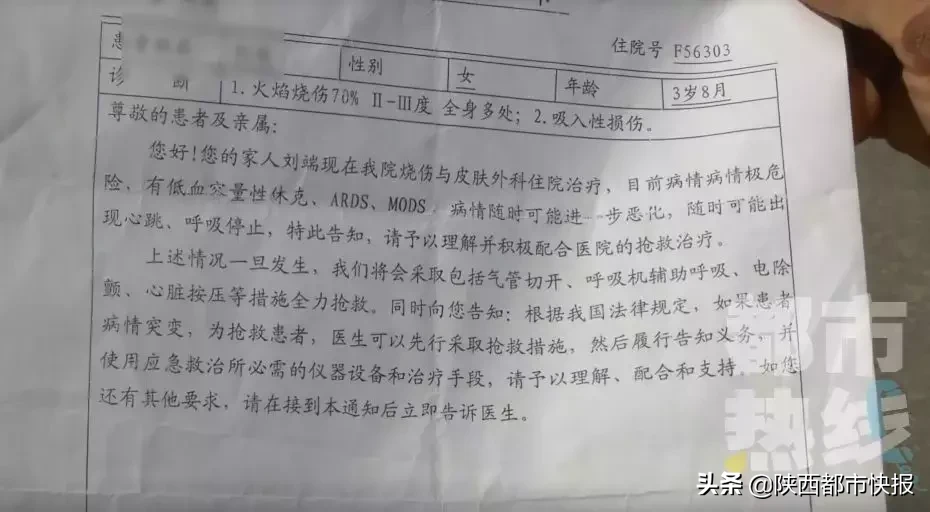 住院号 F56303
患 性别 女 年龄 3岁8月
诊断 1.火焰烧伤70% Ⅱ-Ⅲ度 全身多处；2.吸入性损伤。
尊敬的患者及亲属：
您好！您的家人刘端现在我院烧伤与皮肤外科住院治疗，目前病情病情极危
险，有低血容量性休克、ARDS、MODS，病情随时可能进一步恶化，随时可能出
现心跳、呼吸停止，特此告知，请予以理解并积极配合医院的抢救治疗。
上述情况一旦发生，我们将会采取包括气管切开、呼吸机辅助呼吸、电除
颤、心脏按压等措施全力抢救。同时向您告知：根据我国法律规定，如果患者
病情突变，为抢救患者，医生可以先行采取抢救措施，然后履行告知义务，并
使用应急救治所必需的仪器设备和治疗手段，请予以理解、配合和支持。如您
还有其他要求，请在接到本通知后立即告诉医生。
都市
热线
头条 @陕西都市快报